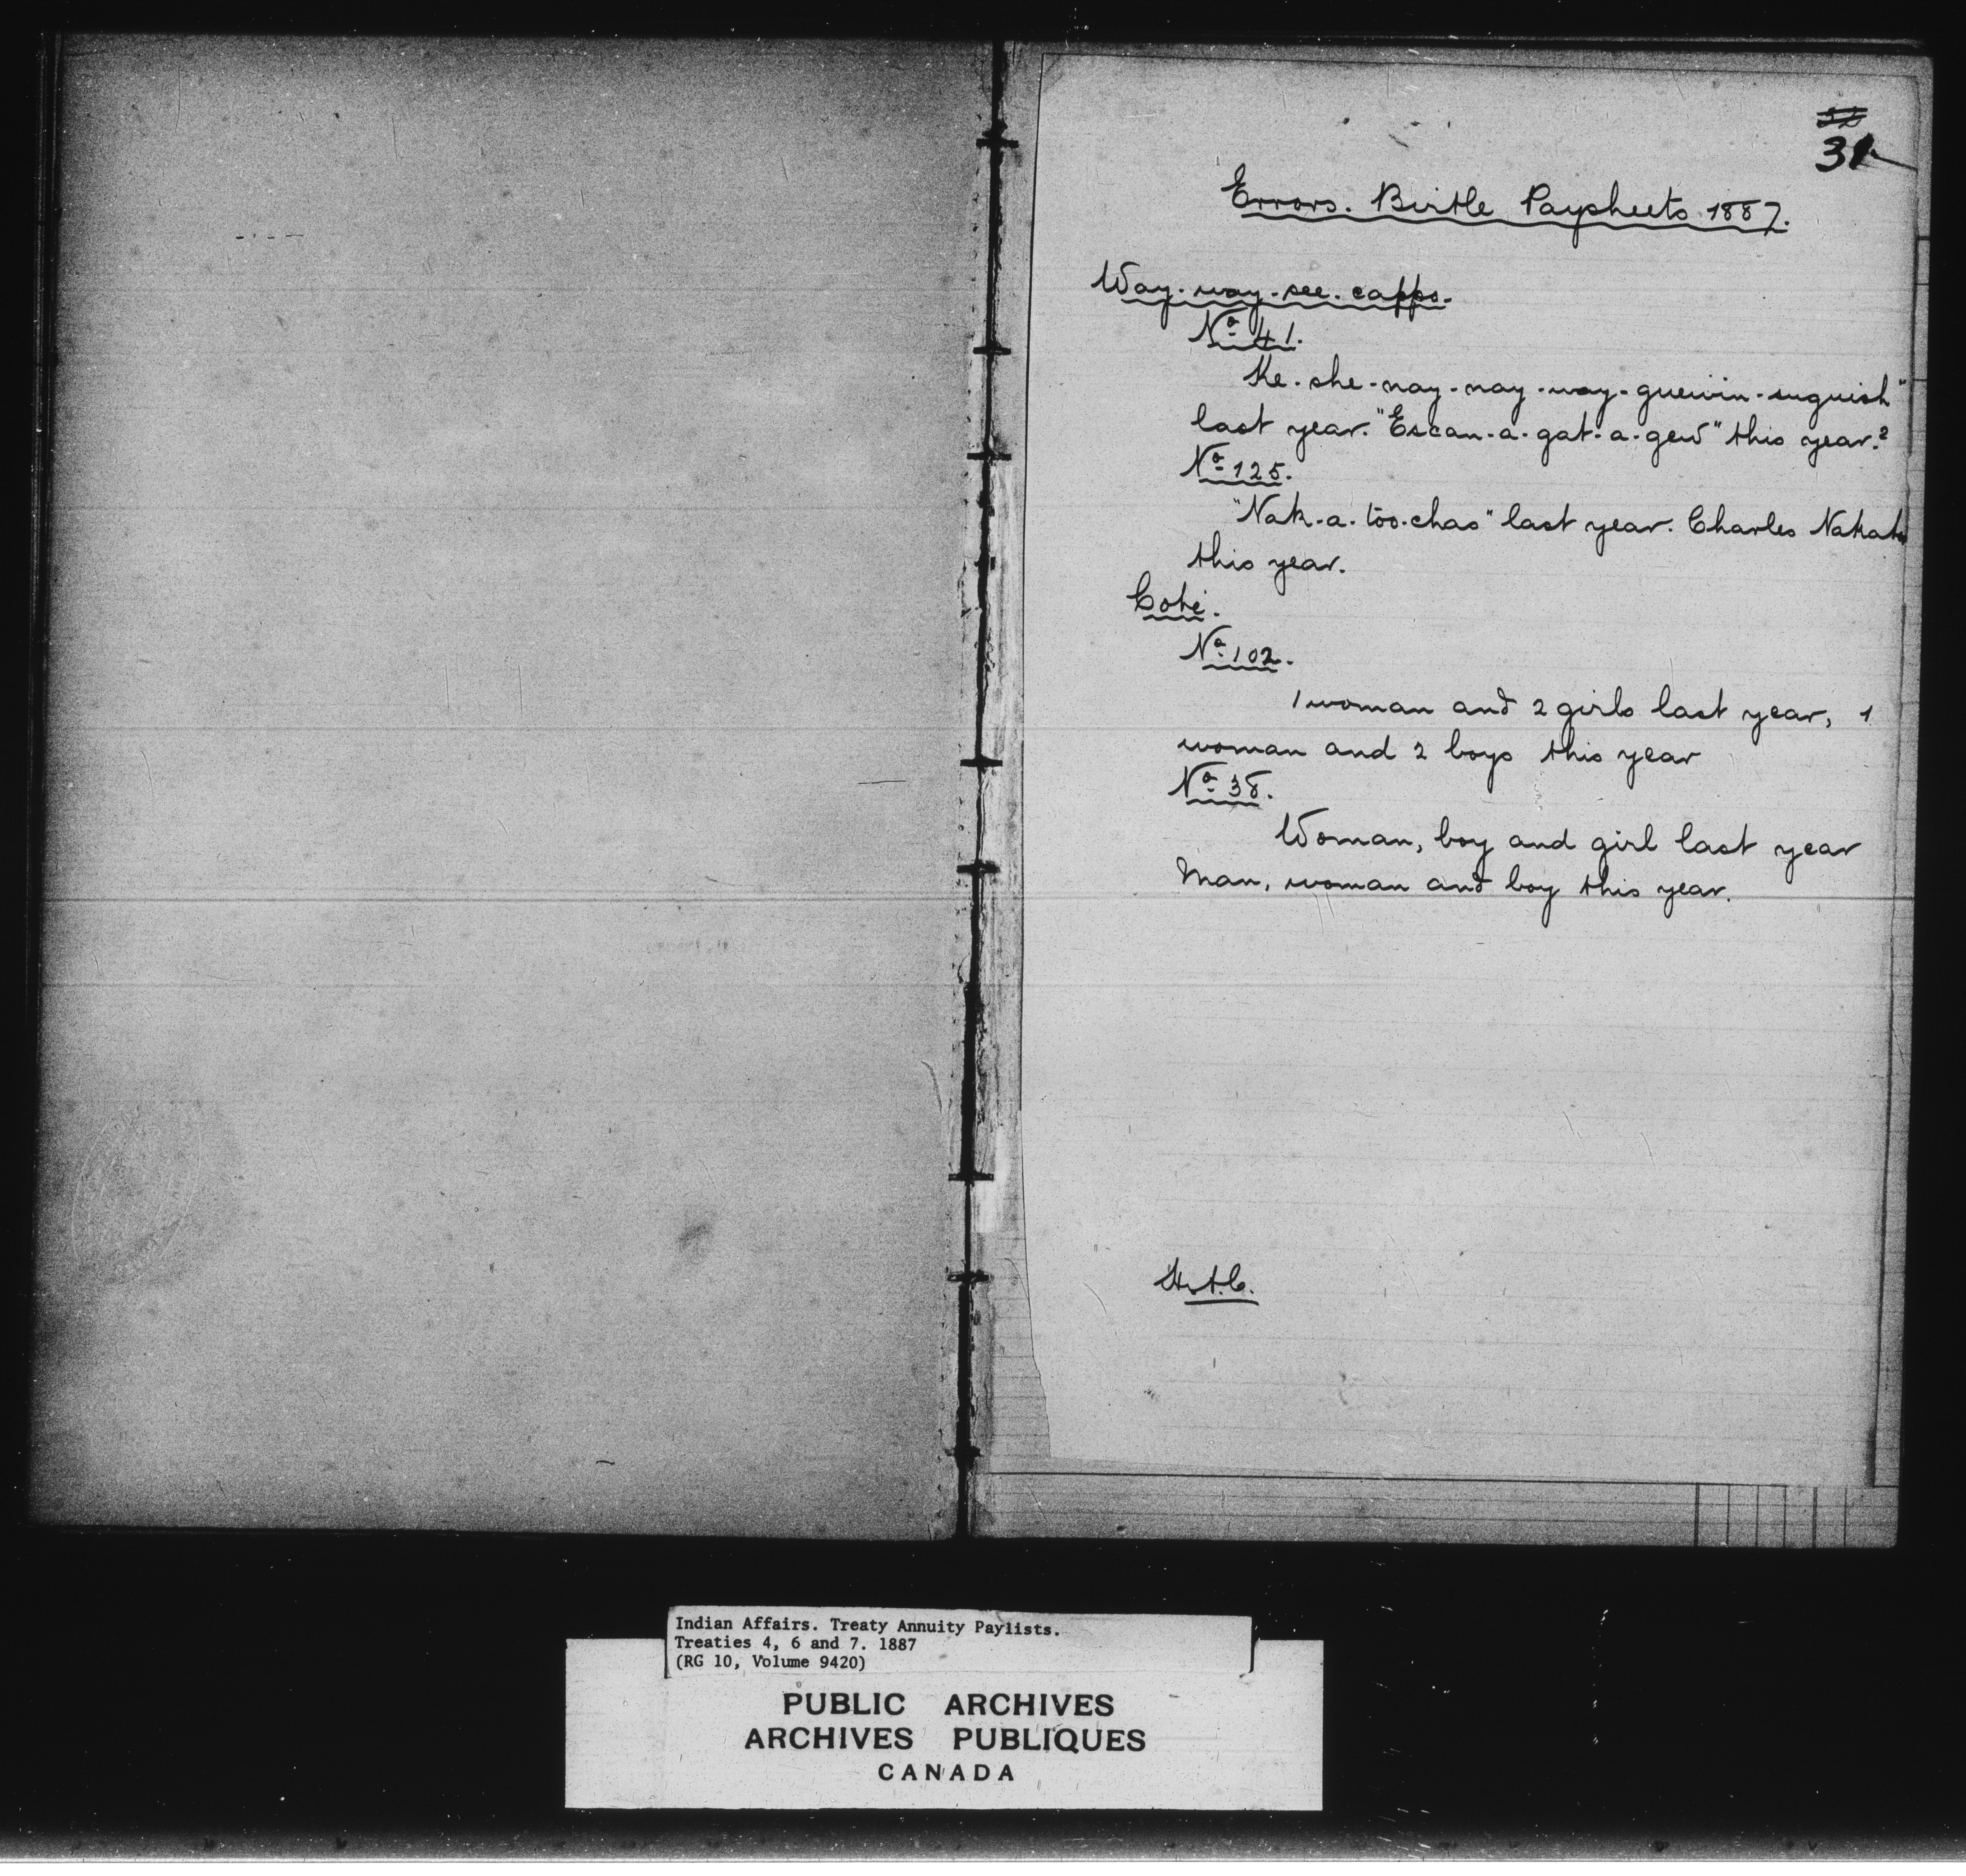 31
Errors. Birtle Paysheets 1887.
Way-way-see-capps.
No 41.
Ke-she-nay-nay-way-guewin-inguish"
last year. "Escan-a-gat-a-gew" this year?
No 125.
"Nak-a-too-chas" last year. Charles Nakato
this year.
Coté.
No 102.
1 woman and 2 girls last year, 1
woman and 2 boys this year
No 38.
Woman, boy and girl last year
Man, woman and boy this year.
Indian Affairs. Treaty Annuity Paylists.
Treaties 4, 6 and 7. 1887
(RG 10, Volume 9420)
PUBLIC ARCHIVES
ARCHIVES PUBLIQUES
CANADA